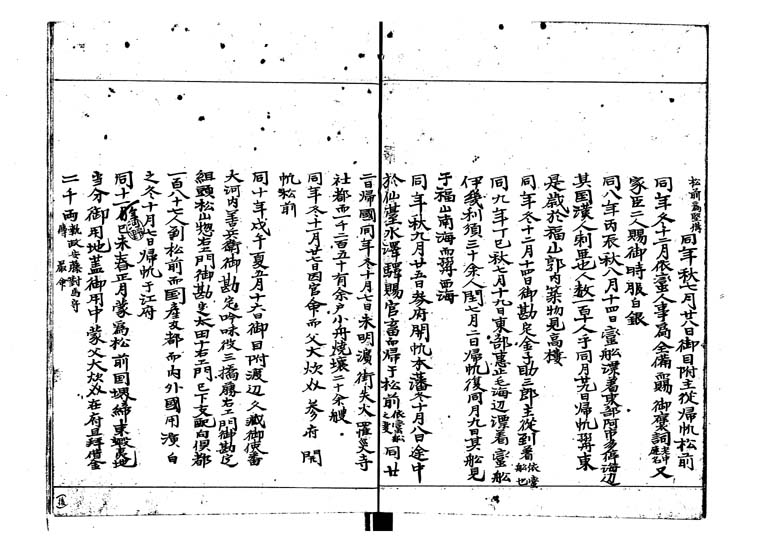 松前為堅搆 同年秋七月廿八日御目附主従帰帆松前
同年冬十二月依蛮人事局全備而賜御褒詞 又
家臣二人賜御時服白銀
同八年丙辰秋八月十四日蛮舩漂著東部阿甫多海辺
其国漢人刺里也人数二百十人于同月廿九日帰帆翔東
是歳於福山郭内築物見高櫓
同年冬十二月十四日御勘定金子助三郎主従到着 依蛮舩也
同九年丁巳秋七月十九日東部恵止毛海辺漂着蛮舩
伊幾利須三十余人閏七月二日帰帆復同月九日其舩見
于福山南海而翔西海
同年秋九月廿五日参府開帆本藩冬十月八日途中
於仙臺水澤驛賜官畜而帰于松前 同廿
二日帰國同年冬十月七日未明濱街失火罹災寺
社都而一千二百五十有余戸小舟焼壊二十余艘
同年冬十一月廿七日因官命而父大炊 参府開
帆松前
同十年戊午夏五月十六日御目附渡辺久蔵御使番
大河内善兵衛御勘定吟味役三橋藤右エ門御勘定
組頭松山惣右エ門御勘定太田十右エ門已下支配向倶都
一百八十七人到松前而国産支部而内外國用演白
之冬十月七日帰帆于江府
同十一 己未春正月蒙為松前国堺締東蝦夷地
当分御用地蓋御用中蒙父大炊 在府且拝借金
二千両 執政安藤対馬守 厳命